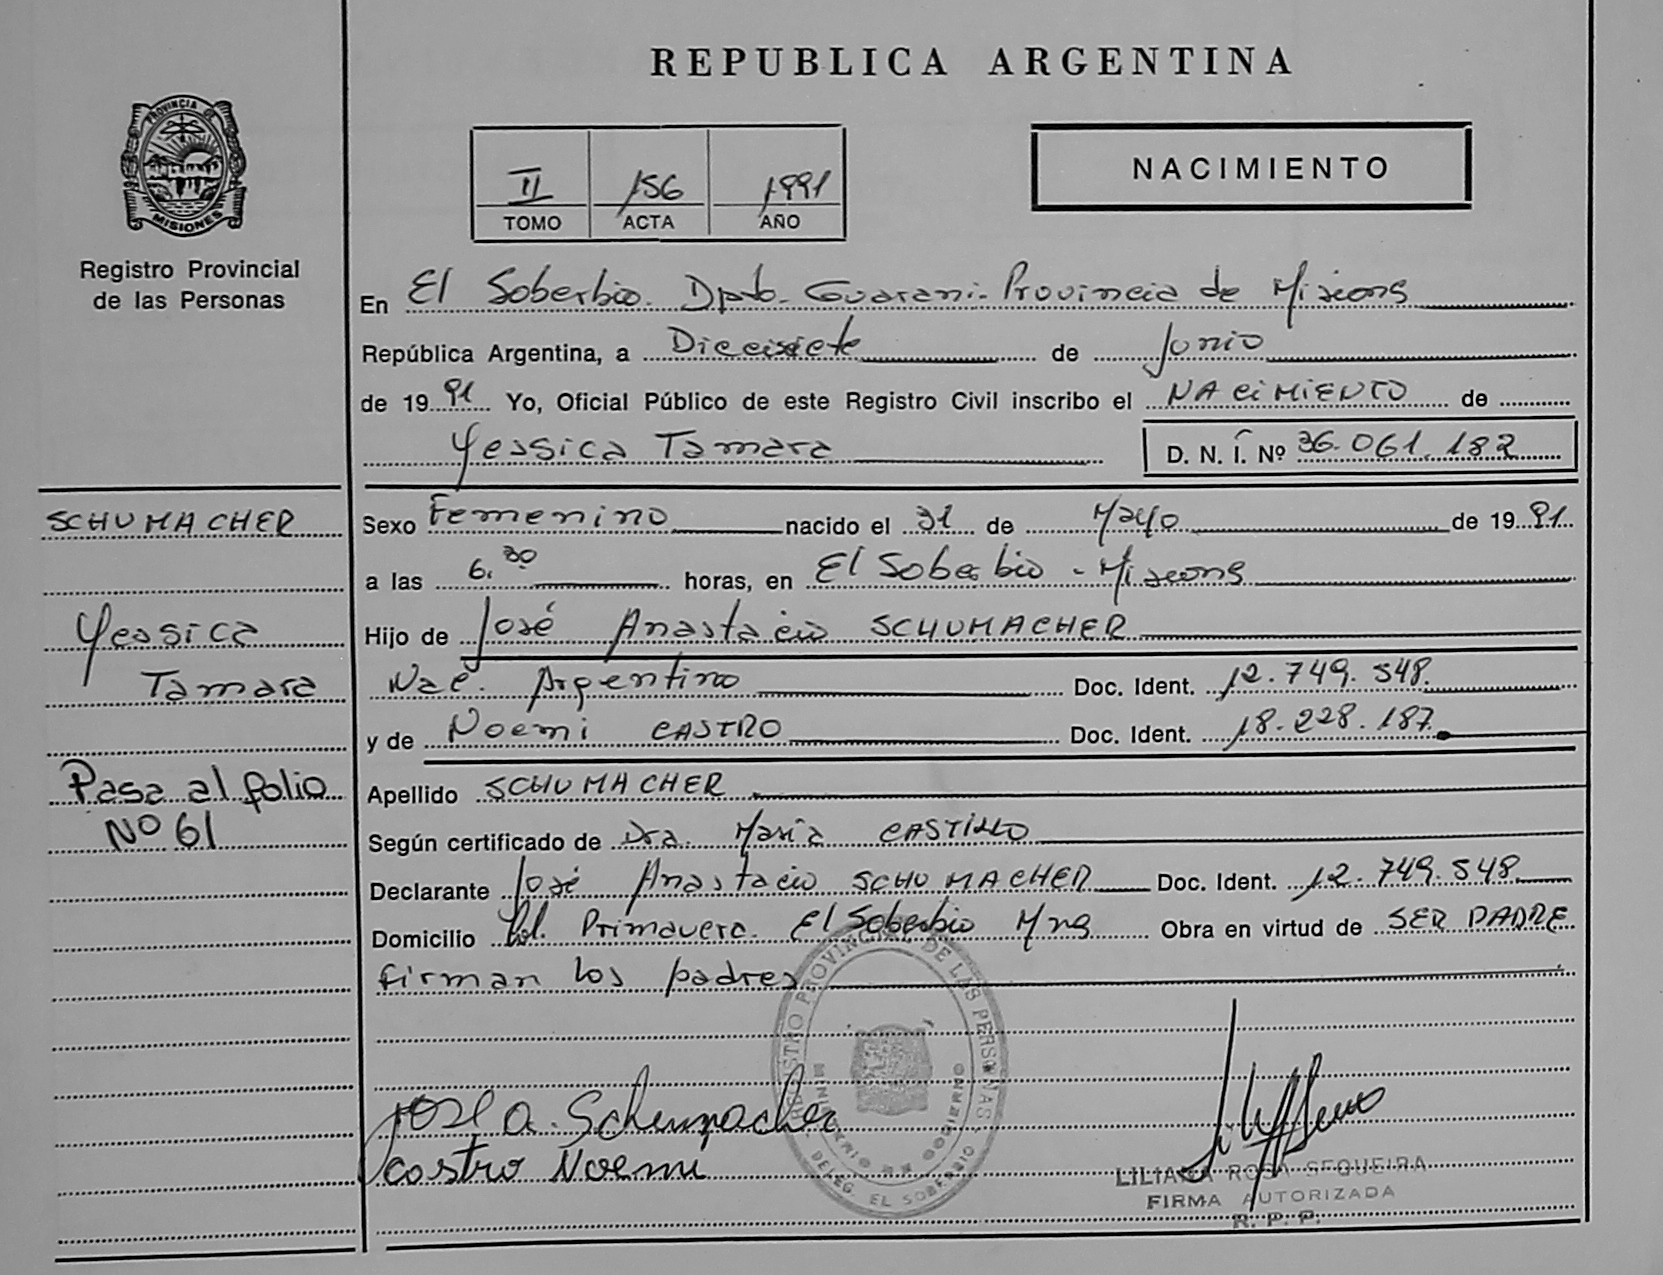 REPUBLICA ARGENTINA
PROVINCIA DE
MISIONES
Registro Provincial
de las Personas
II 156 1991
TOMO ACTA AÑO
NACIMIENTO
En El Soberbio. Dpto. Guarani. Provincia de Misiones
República Argentina, a Diecisiete de Junio
de 1991 Yo, Oficial Público de este Registro Civil inscribo el NACIMIENTO de
Yessica Tamara D. N. I. Nº 36.061.182
SCHUMACHER
Yessica
Tamara
Pasa al folio
Nº 61
Sexo Femenino nacido el 31 de Mayo de 1991
a las 6.30 horas, en El Soberbio - Misiones
Hijo de José Anastacio SCHUMACHER
Nac. Argentino Doc. Ident. 12.749.548.
y de Noemi CASTRO Doc. Ident. 18.228.187
Apellido SCHUMACHER
Según certificado de Dra. María CASTILLO
Declarante José Anastacio SCHUMACHER Doc. Ident. 12.749.548
Domicilio Col. Primavera. El Soberbio Mns Obra en virtud de SER PADRE
firman los padres
REGISTRO PROVINCIAL DE LAS PERSONAS
MINISTERIO DE GOBIERNO
DELEG. EL SOBERBIO
Jose A. Schumacher
Castro Noemi
LILIANA ROSA SEQUEIRA
FIRMA AUTORIZADA
R. P. P.